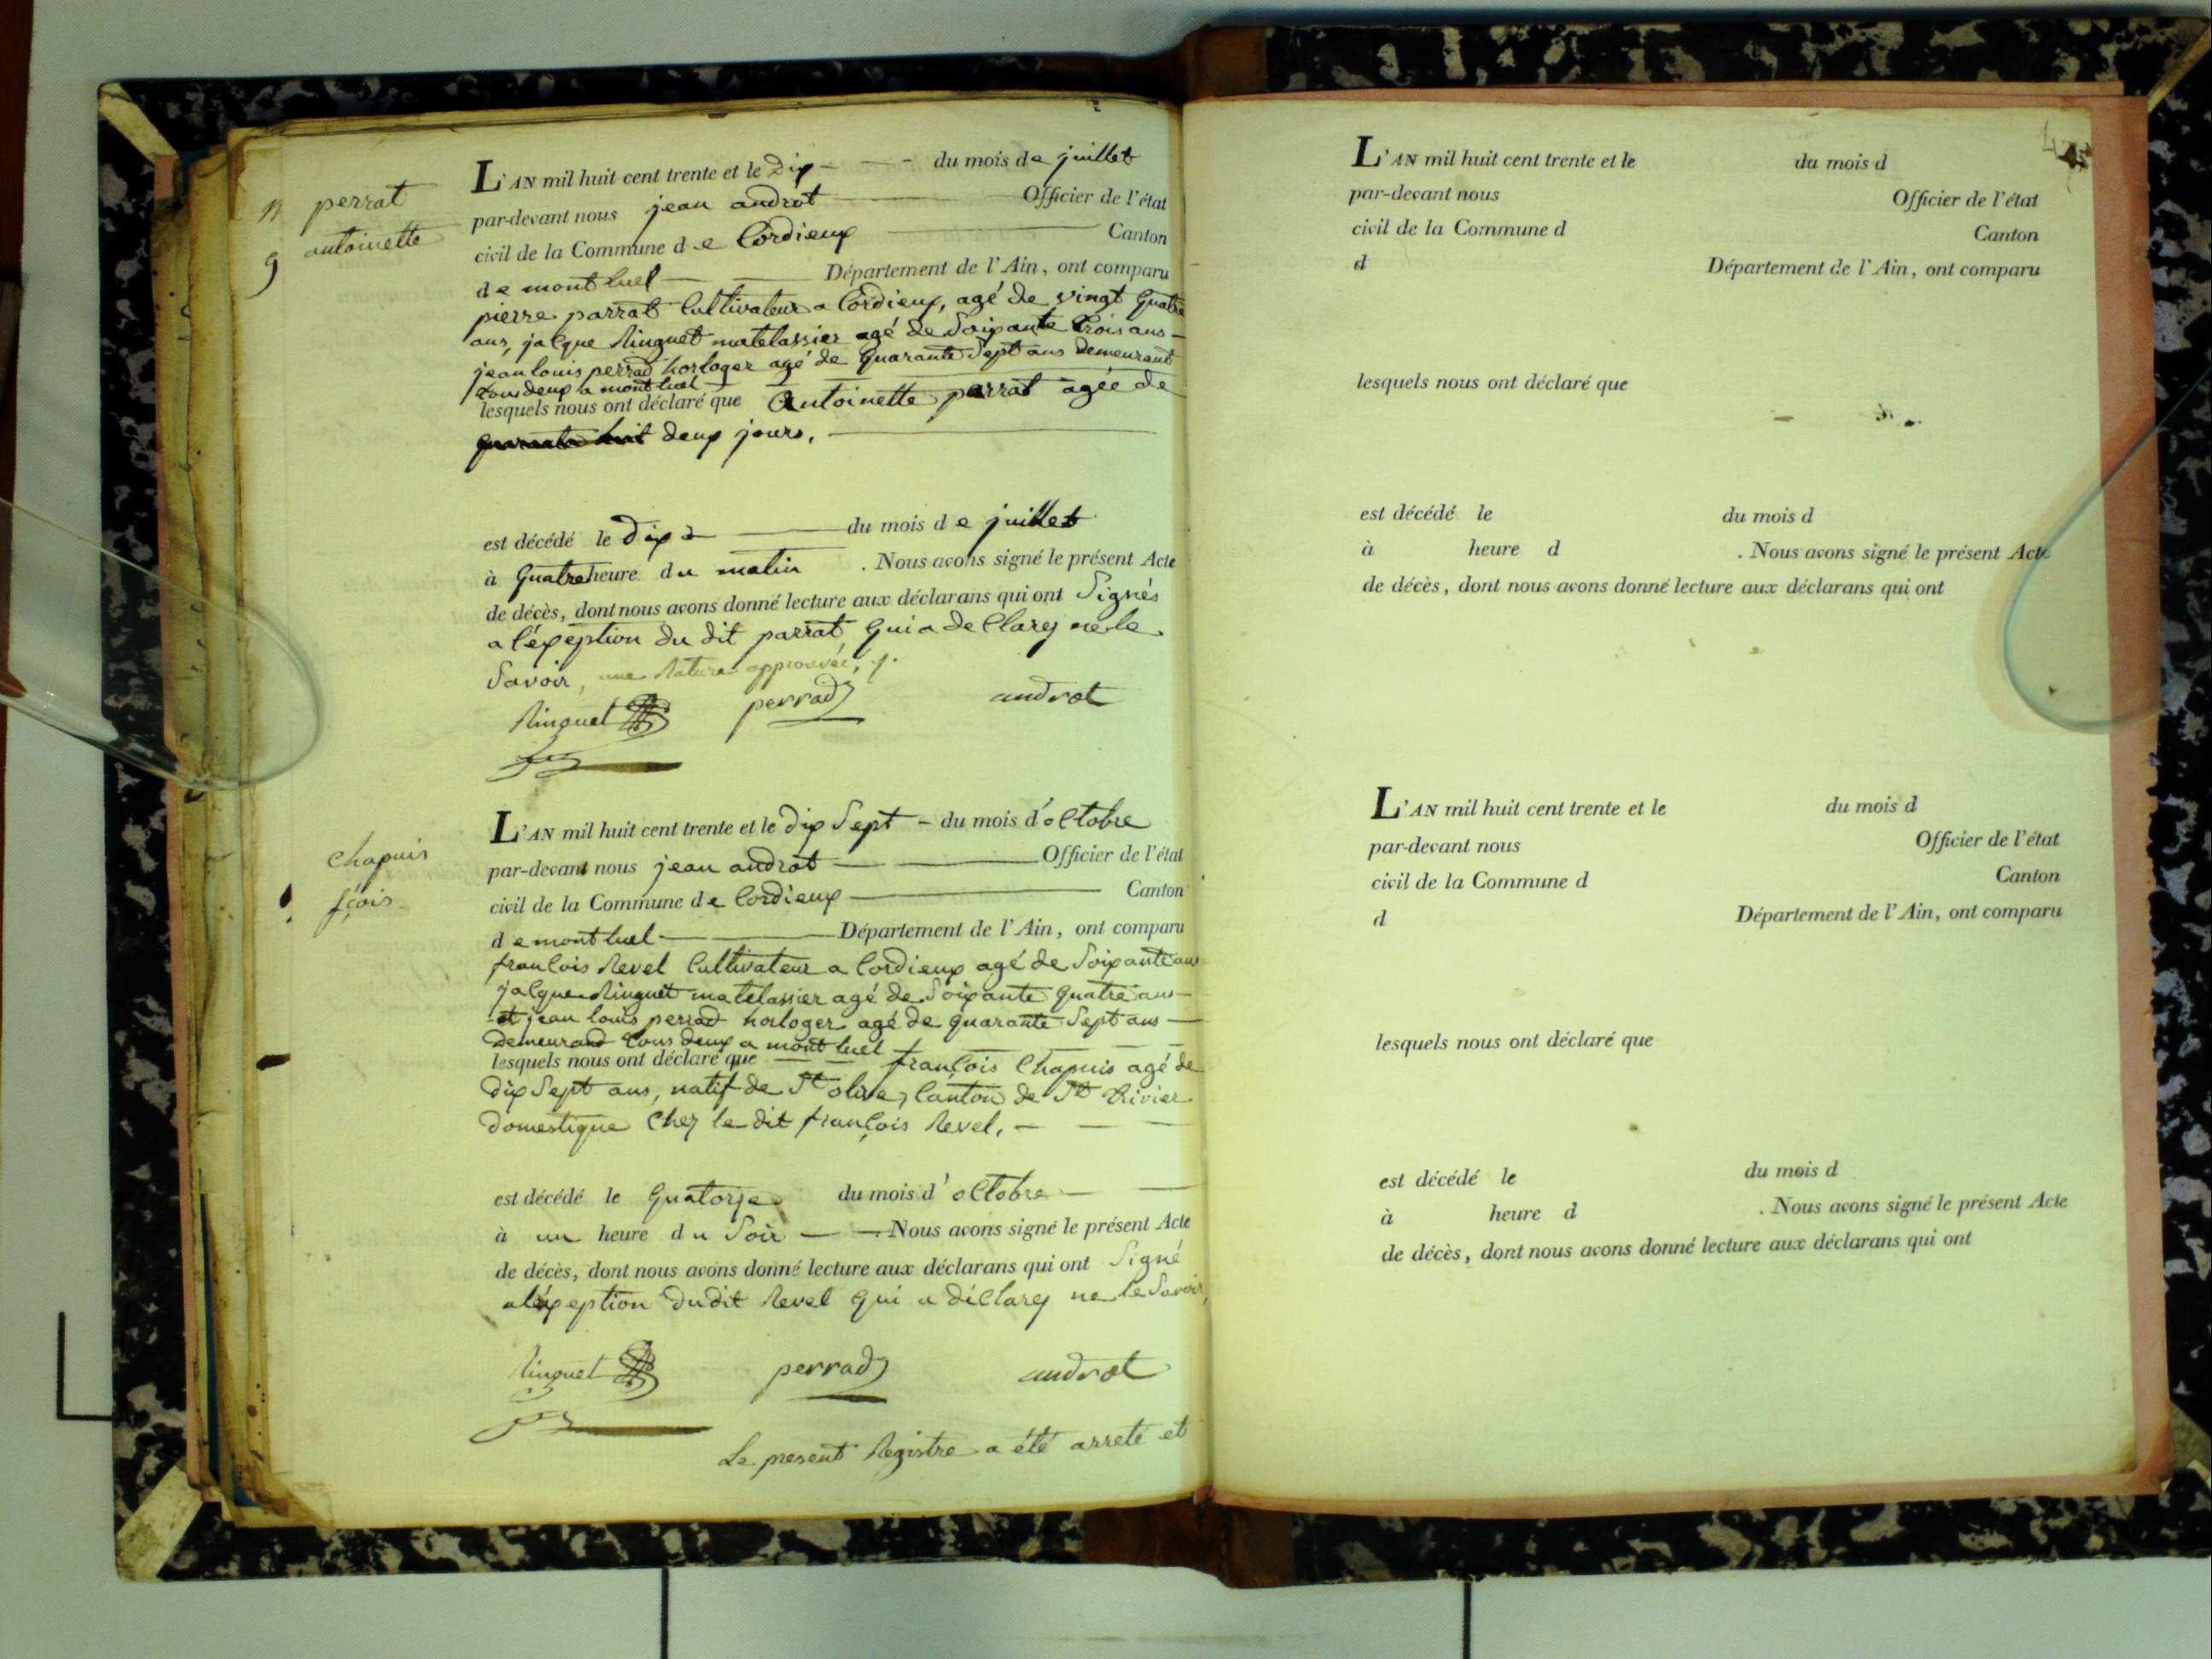 perrat
antoinette
9
L'AN mil huit cent trente et le Dix du mois de juillet
par-devant nous jean androt Officier de l'état
civil de la Commune de Cordieux Canton
de montluel Département de l'Ain, ont comparu
pierre parrat Cultivateur a Cordieux, agé de vingt quatre
ans, jacque Ringuet matelassier agé de Soixante trois ans
jean louis perrad horloger agé de quarante Sept ans demeurant
tous deux a montluel
lesquels nous ont déclaré que Antoinette parrat agée de
quarante huit deux jours,
est décédé le Dix du mois de juillet
à quatre heure du matin . Nous avons signé le présent Acte
de décès, dont nous avons donné lecture aux déclarans qui ont Signés
a l'éxeption du dit parrat qui a declarez ne le
Savoir, une Rature approuvée,
Ringuet perrad androt
Chapuis
fçois
L'AN mil huit cent trente et le dix Sept du mois d'octobre
par-devant nous jean androt Officier de l'état
civil de la Commune de Cordieux Canton
de montluel Département de l'Ain, ont comparu
francois Revel Cultivateur a Cordieux agé de Soixante ans
jacque Ringuet matelassier agé de Soixante quatre ans
et jean louis perrad horloger agé de quarante Sept ans
Demeurand tous deux a montluel
lesquels nous ont déclaré que françois Chapuis agé de
Dix Sept ans, natif de St olive, Canton de St trivier
Domestique Chez le dit françois Revel,
est décédé le quatorze du mois d'octobre
à un heure du Soir . Nous avons signé le présent Acte
de décès, dont nous avons donné lecture aux déclarans qui ont Signé
a l'éxeption dudit Revel qui a déclarez ne le Savoir,
Ringuet perrad androt
Le present Registre a été arreté et
L'AN mil huit cent trente et le du mois d
par-devant nous Officier de l'état
civil de la Commune d Canton
d Département de l'Ain, ont comparu
lesquels nous ont déclaré que
est décédé le du mois d
à heure d . Nous avons signé le présent Acte
de décès, dont nous avons donné lecture aux déclarans qui ont
L'AN mil huit cent trente et le du mois d
par-devant nous Officier de l'état
civil de la Commune d Canton
d Département de l'Ain, ont comparu
lesquels nous ont déclaré que
est décédé le du mois d
à heure d . Nous avons signé le présent Acte
de décès, dont nous avons donné lecture aux déclarans qui ont